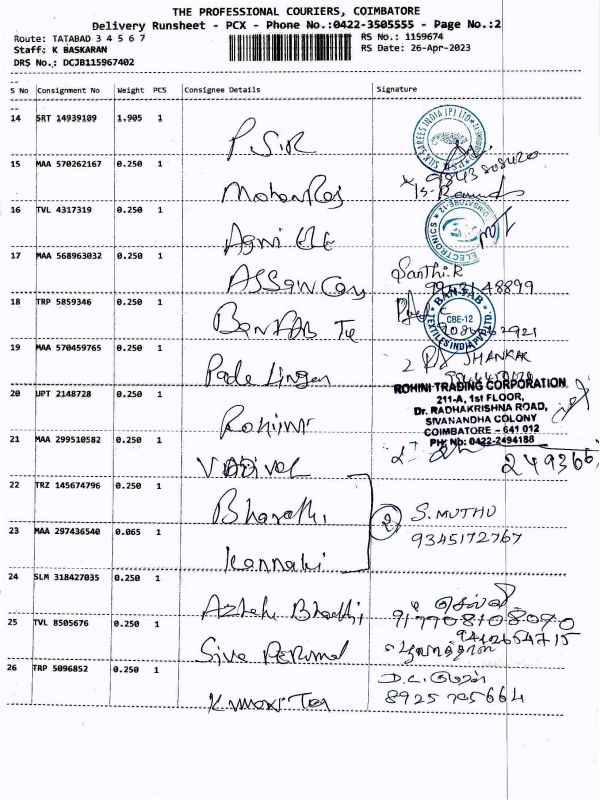 THE PROFESSIONAL COURIERS, COIMBATORE
Delivery Runsheet - PCX - Phone No.:0422-3505555 - Page No.:2
Route: TATABAD 3 4 5 6 7
RS No.: 1159674
Staff: K BASKARAN
RS Date: 26-Apr-2023
DRS No.: DCJB115967402
S No Consignment No Weight PCS Consignee Details Signature
14 SRT 14939109 1.905 1
P. SIR
15 MAA 570262167 0.250 1
9843808420
Mohan Raj
16 TVL 4317319 0.250 1
ELECTRONICS
Agni Ele
17 MAA 568963032 0.250 1
Santhi.R
Assan Cay
18 TRP 5859346 0.250 1
BANTAB
CBE-12
TEXTILES INDIA PVT LTD.
BanTAB Tex
19 MAA 570459765 0.250 1
SHANKAR
Pade Lingam
20 UPT 2148728 0.250 1
ROHINI TRADING CORPORATION
211-A, 1st FLOOR,
Dr. RADHAKRISHNA ROAD,
SIVANANDHA COLONY
COIMBATORE - 641 012
PH: No: 0422-2494188
Rohini
21 MAA 299510582 0.250 1
Vadivel
22 TRZ 145674796 0.250 1
Bharathi
2 S. MUTHU
9345172767
23 MAA 297436540 0.065 1
Kannaki
24 SLM 318427035 0.250 1
செல்வி
Bharathi
25 TVL 8505676 0.250 1
Siva Perumal
26 TRP 5096852 0.250 1
8925705664
Kumar Tex